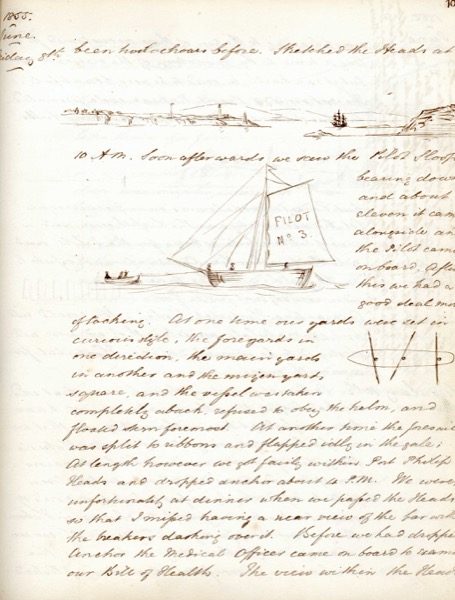 10
1855.
June.
Friday 8th. been two hours before. Sketched the Heads at
10 A.M. Soon afterwards, we saw the Pilot Sloop
bearing down
and about
eleven it came
alongside and
the Pilot came
onboard. After
this we had a
good deal more
PILOT
No 3.
of tacking. At one time our yards were set in
curious style, the foreyards in
one direction, the main yards
in another and the mizen yards
square, and the vessel was taken
completely aback, refused to obey the helm, and
floated stern foremost. At another time the foresail
was split to ribbons and flapped idly in the gale;
At length however we got fairly within Port Philip
Heads and dropped anchor about 4 P.M. We were
unfortunately at dinner when we passed the Heads
so that I missed having a near view of the bar with
the breakers dashing over it. Before we had dropped
Anchor the Medical Officer came on board to examine
our Bill of Health. The view within the Heads